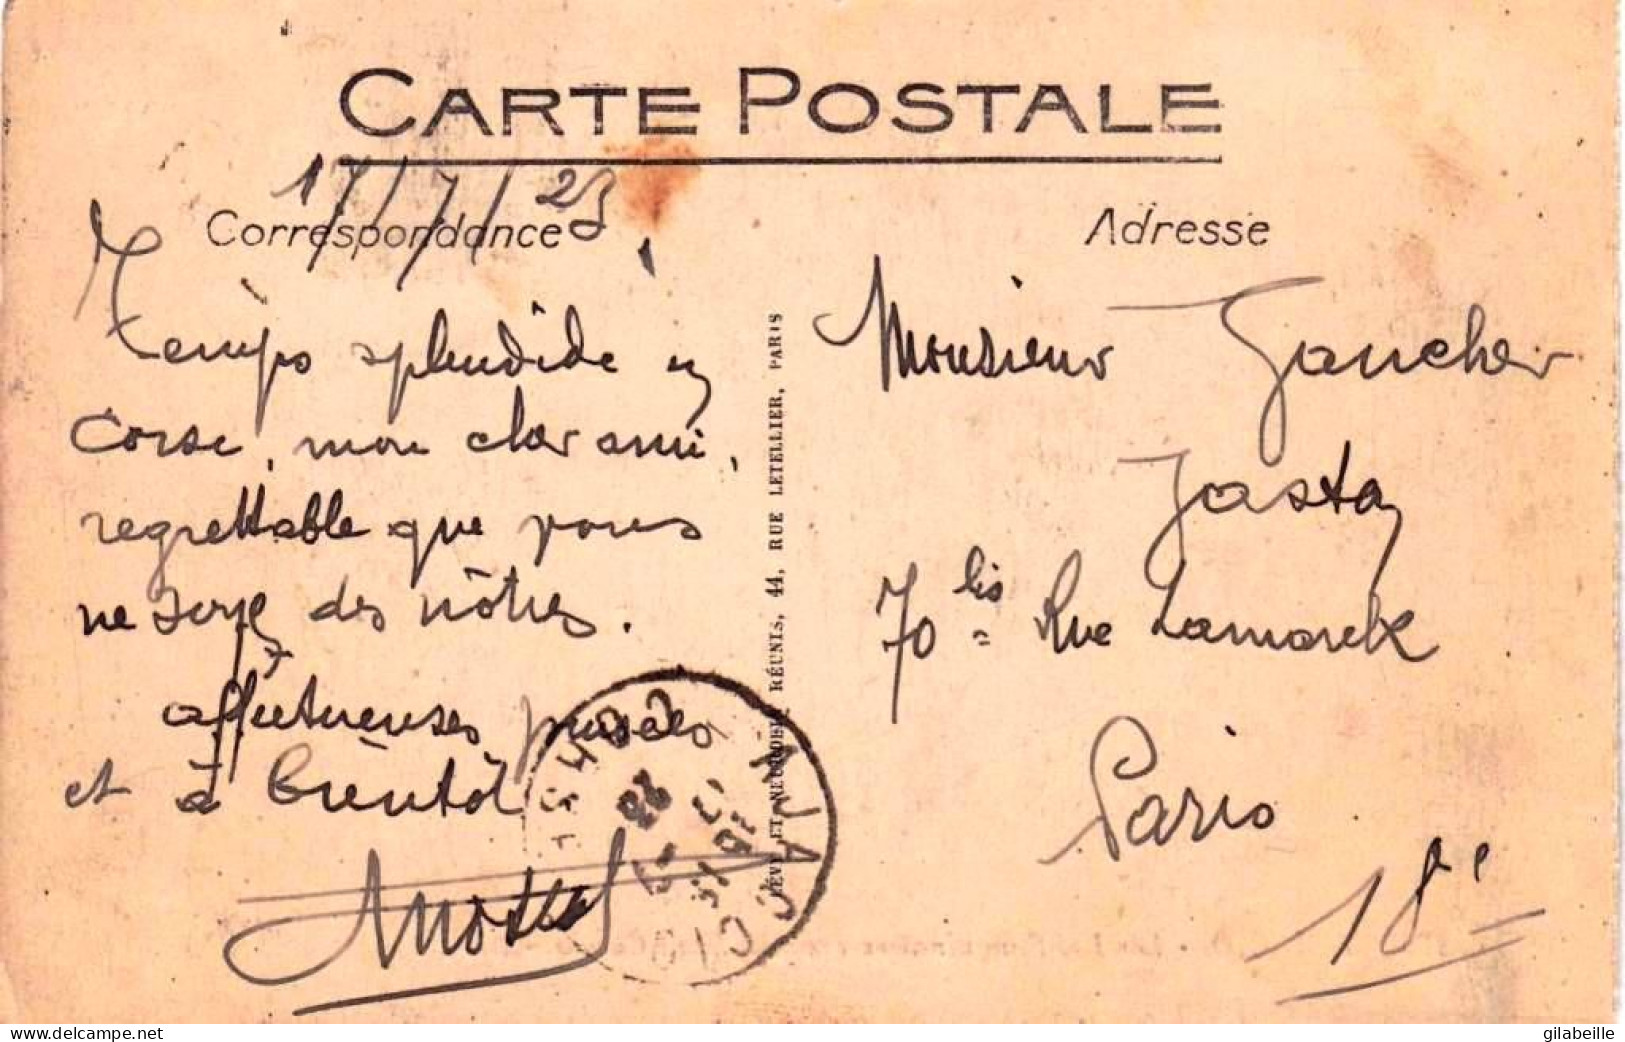 CARTE POSTALE
17/7/23
Correspondance
Temps splendide en
Corse, mon cher ami,
regrettable que vous
ne soyez des nôtres.
affectueuses pensées
et à bientôt
Adresse
Monsieur Gaucher
70 bis Rue Lamarck
Paris
18e
LÉVY ET NEURDEIN RÉUNIS, 44, RUE LETELLIER, PARIS
AJACCIO
CORSE
delcampe.net
gilabeille